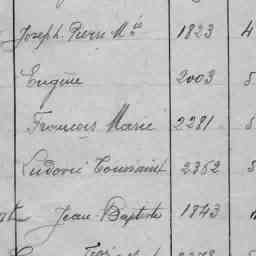 Joseph Pierre Mie 1823 4
Eugène 2003 5
François Marie 2281 5
Ludovic Toussaint 2352 5
Jean-Baptiste 1843